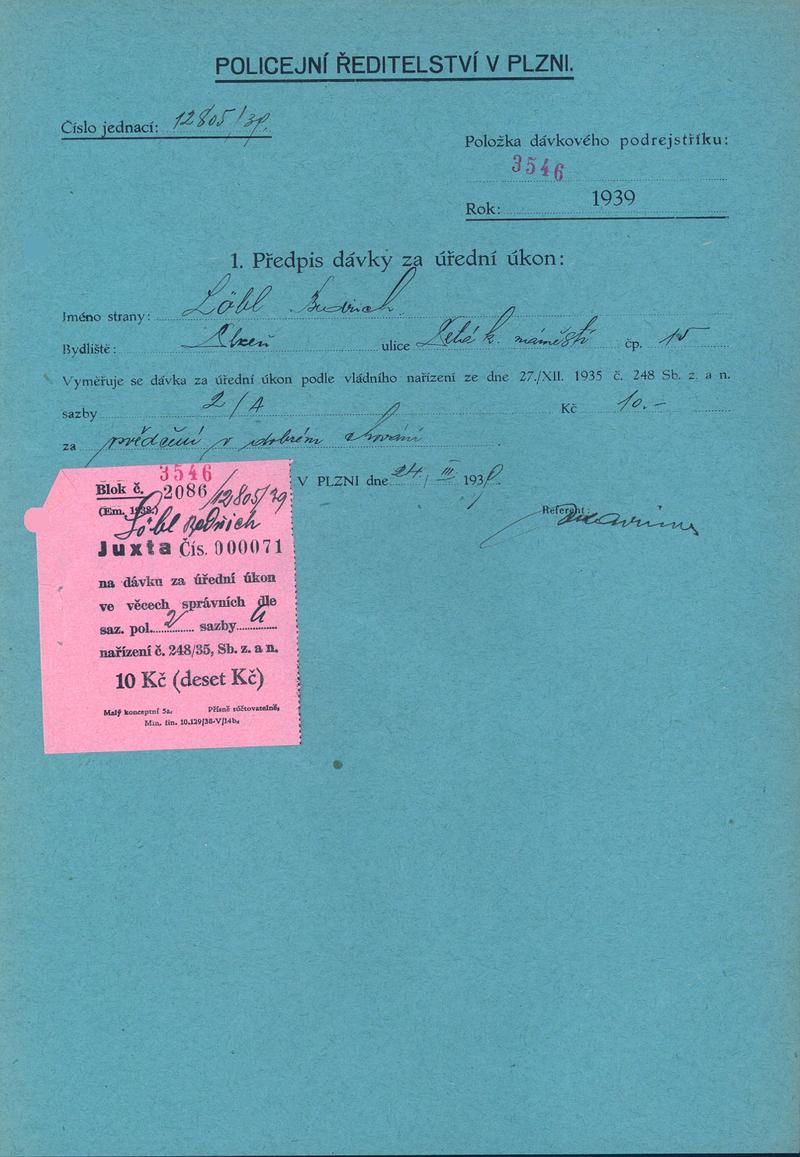 POLICEJNÍ ŘEDITELSTVÍ V PLZNI.
Číslo jednací: 12805/39.
Položka dávkového podrejstříku:
3546
Rok: 1939
1. Předpis dávky za úřední úkon:
Jméno strany: Löbl Bedřich
Bydliště: Plzeň ulice náměstí čp. 15
Vyměřuje se dávka za úřední úkon podle vládního nařízení ze dne 27./XII. 1935 č. 248 Sb. z. a n.
sazby 2/A Kč 10.-
za v dobrém chování
V PLZNI dne 24/III. 1939.
Referent:
3546
Blok č. 2086 /12805/39
(Em. 1938.)
Löbl Bedřich
Juxta Čís. 000071
na dávku za úřední úkon
ve věcech správních dle
saz. pol. 2 sazby A
nařízení č. 248/35, Sb. z. a n.
10 Kč (deset Kč)
Malý konceptní 5a. Přísně zúčtovatelné.
Min. fin. 10.129/38-V/14b.